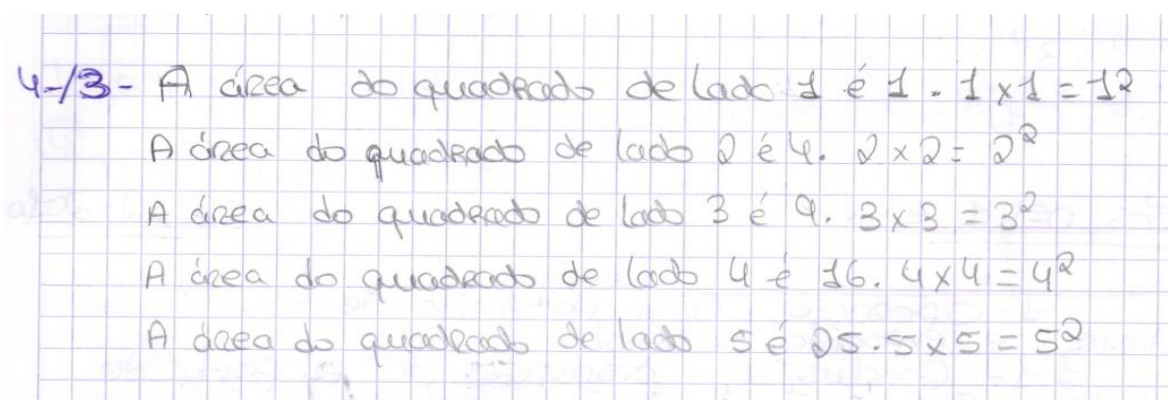 4-/3- A área do quadrado de lado 1 é 1. 1x1 = 1²
A área do quadrado de lado 2 é 4. 2x2 = 2²
A área do quadrado de lado 3 é 9. 3x3 = 3²
A área do quadrado de lado 4 é 16. 4x4 = 4²
A área do quadrado de lado 5 é 25. 5x5 = 5²